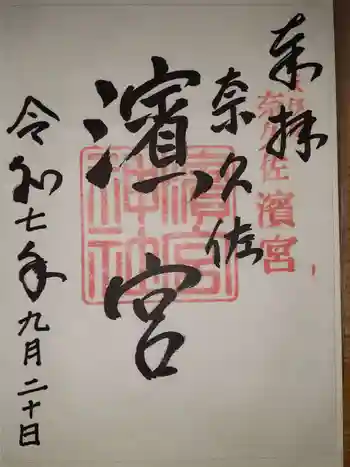 奉拝
奈久佐
濱宮
奈久佐
濱宮
濱宮
神社
令和七年九月二十日